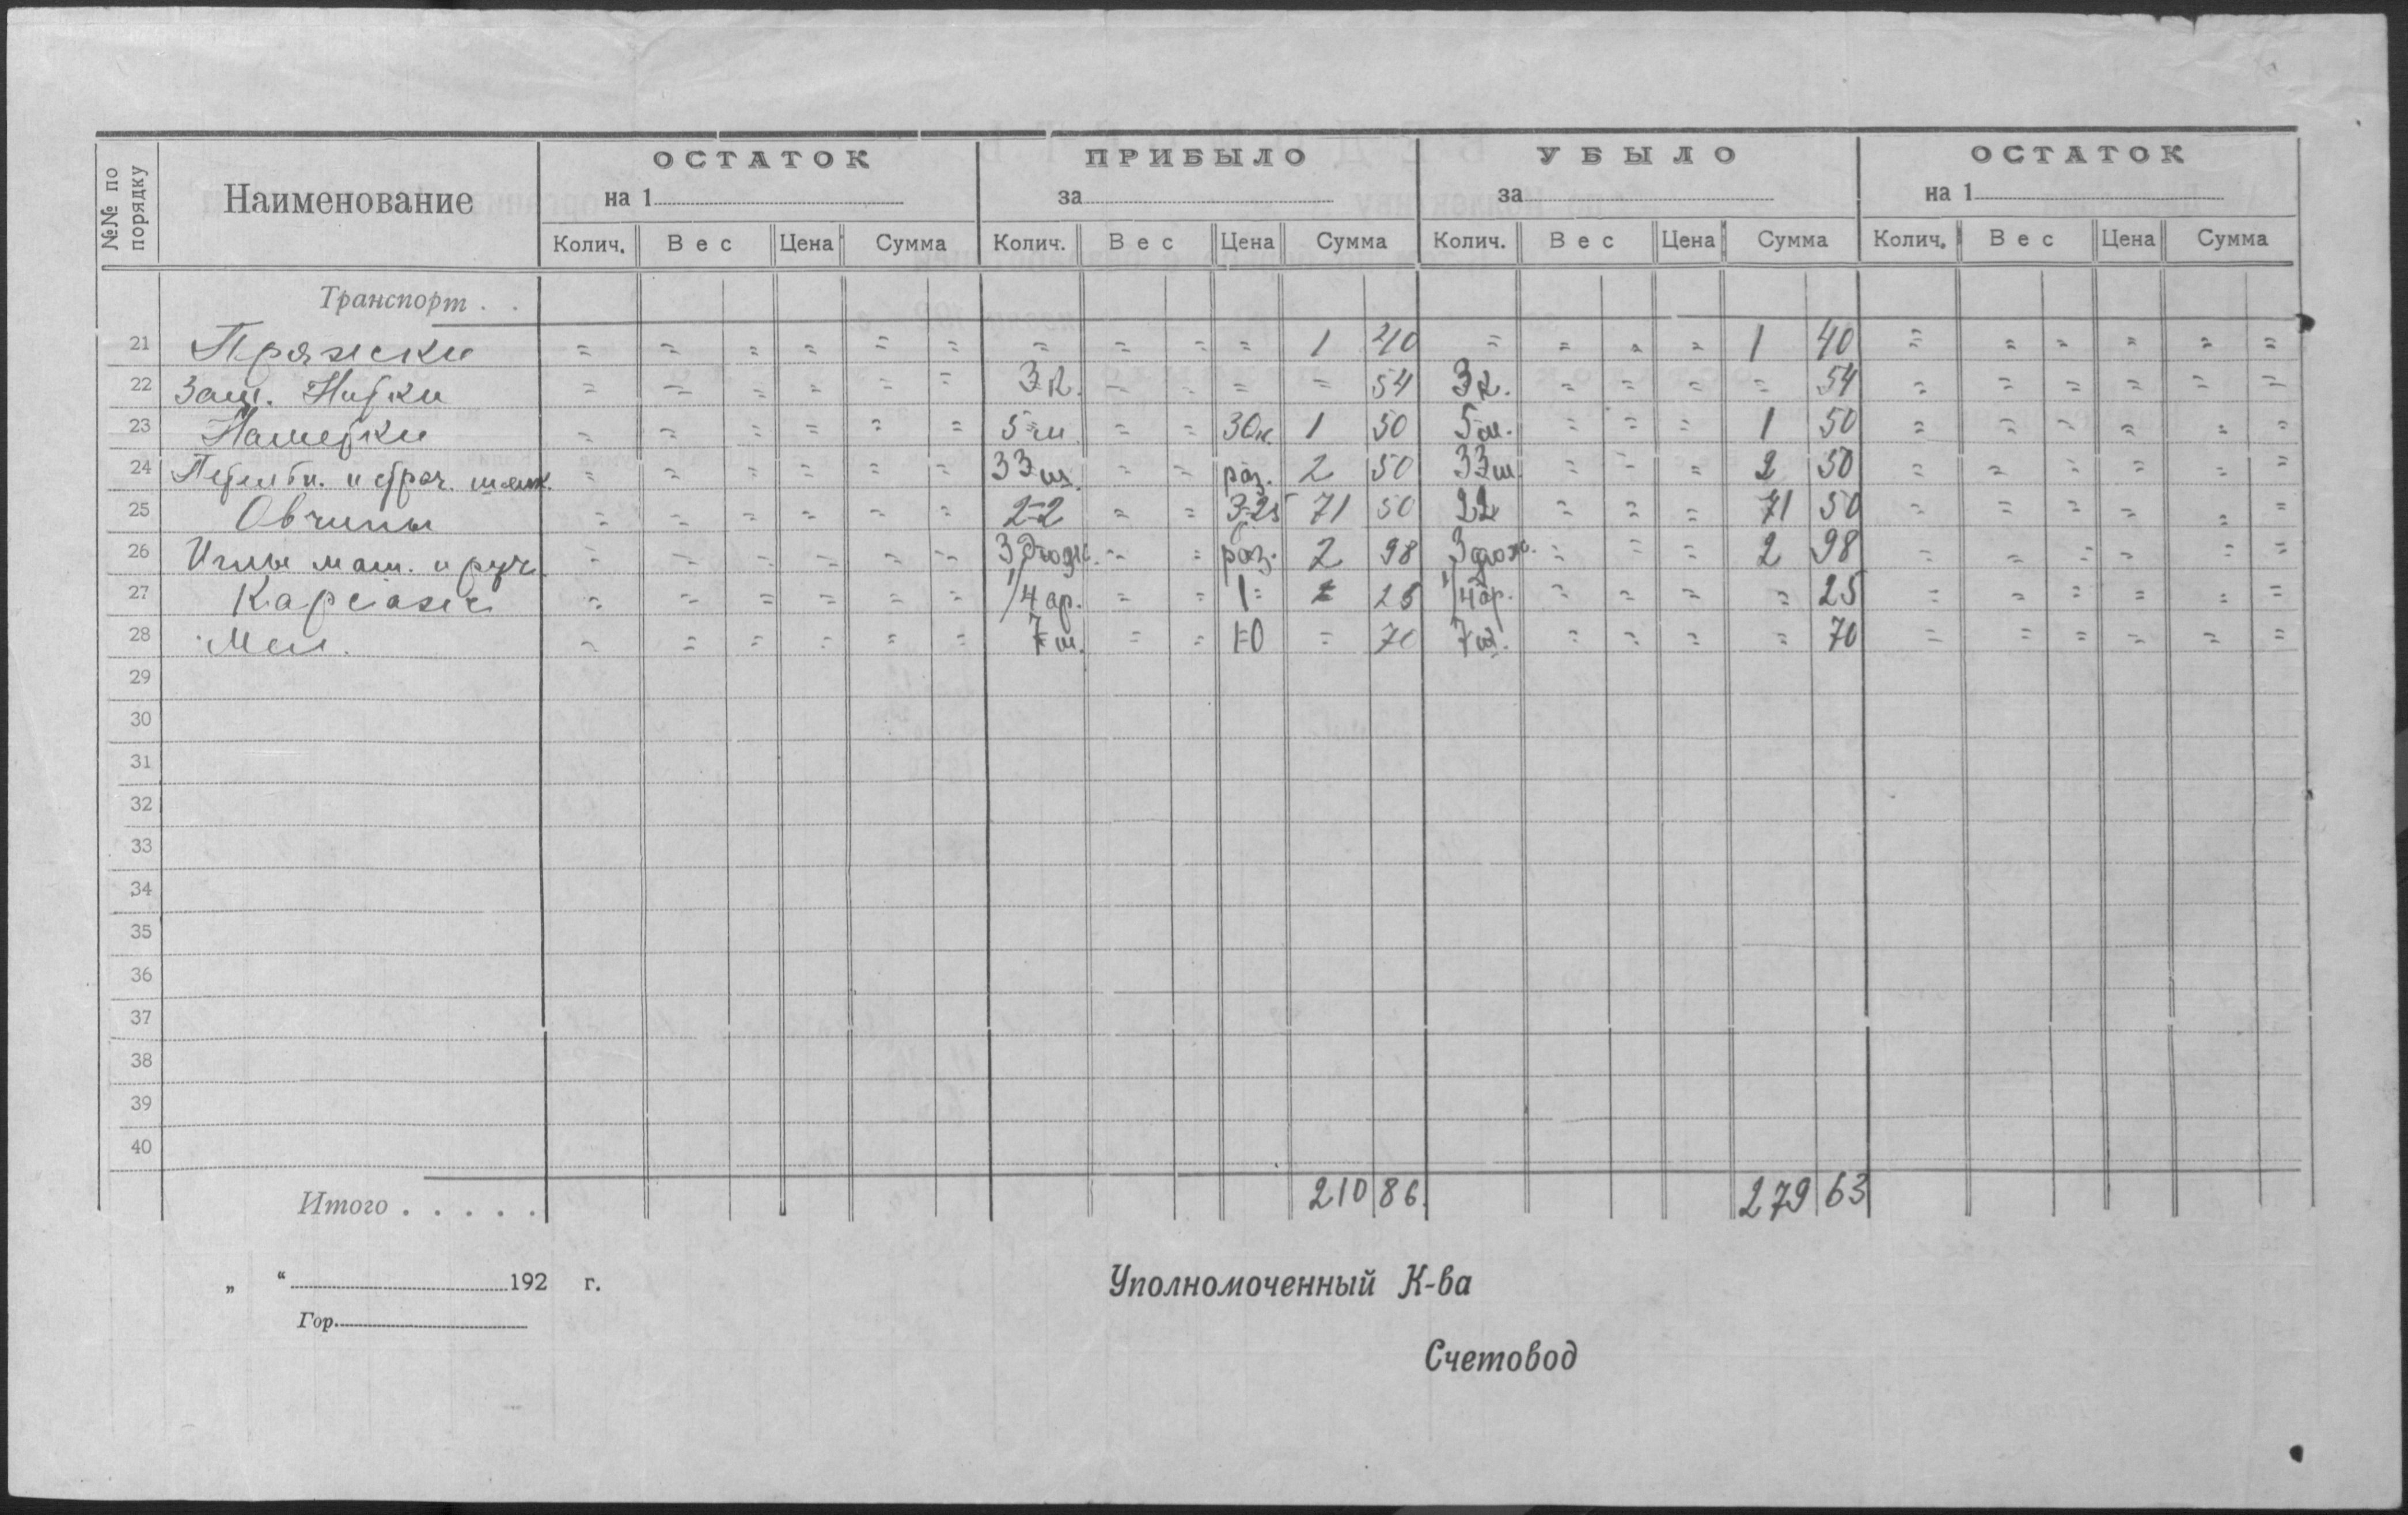 №№ по порядку Наименование ОСТАТОК ПРИБЫЛО УБЫЛО ОСТАТОК
на 1 за за на 1
Колич. Вес Цена Сумма Колич. Вес Цена Сумма Колич. Вес Цена Сумма Колич. Вес Цена Сумма
Транспорт . .
21 Пряжски = = = = = = = = = = 1 40 = = = = 1 40 = = = = = =
22 Заш. Нитки = = = = = = 3 к. = = = = 54 3 к. = = = = 54 = = = = = =
23 Наметки = = = = = = 5 м = = 30к 1 50 5 м. = = = 1 50 = = = = = =
24 = = = = = = 33 ш. = = раз. 2 50 33 ш. = = = 2 50 = = = = = =
25 Овчины = = = = = = 22 = = 3-25 71 50 22 = = = 71 50 = = = = = =
26 Иглы маш. и руч. = = = = = = 3 дюж. = = раз. 2 98 3 дюж. = = = 2 98 = = = = = =
27 = = = = = = 1/4 ар. = = 1= = 25 1/4 ар. = = = = 25 = = = = = =
28 Мел. = = = = = = 7 ш. = = 10 = 70 7 ш. = = = = 70 = = = = = =
29
30
31
32
33
34
35
36
37
38
39
40
Итого . . . . . 210 86. 279 63
„ “ 192 г. Уполномоченный К-ва
Гор.
Счетовод